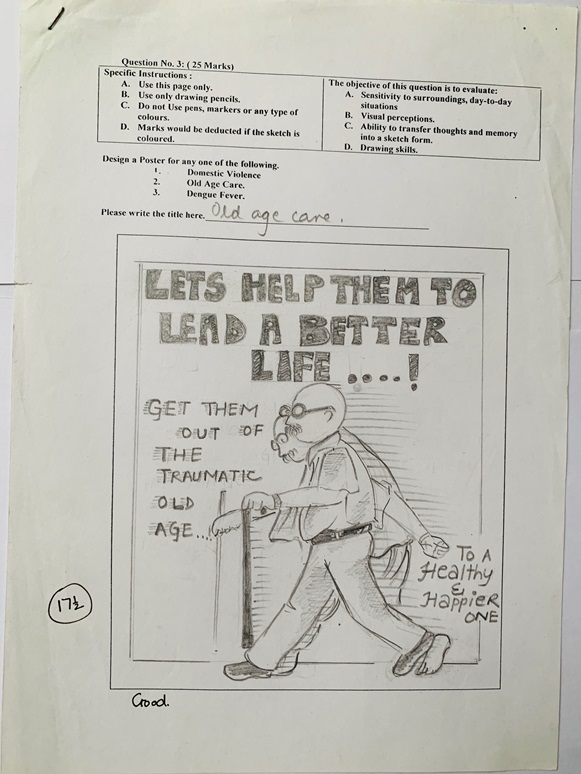 Question No. 3: ( 25 Marks)
Specific Instructions :
A. Use this page only.
B. Use only drawing pencils.
C. Do not Use pens, markers or any type of
colours.
D. Marks would be deducted if the sketch is
coloured.
The objective of this question is to evaluate:
A. Sensitivity to surroundings, day-to-day
situations
B. Visual perceptions.
C. Ability to transfer thoughts and memory
into a sketch form.
D. Drawing skills.
Design a Poster for any one of the following.
1. Domestic Violence
2. Old Age Care.
3. Dengue Fever.
Please write the title here. Old age care.
LETS HELP THEM TO
LEAD A BETTER
LIFE ....!
GET THEM
OUT OF
THE
TRAUMATIC
OLD
AGE....
TO A
Healthy
&
Happier
ONE
17½
Good.